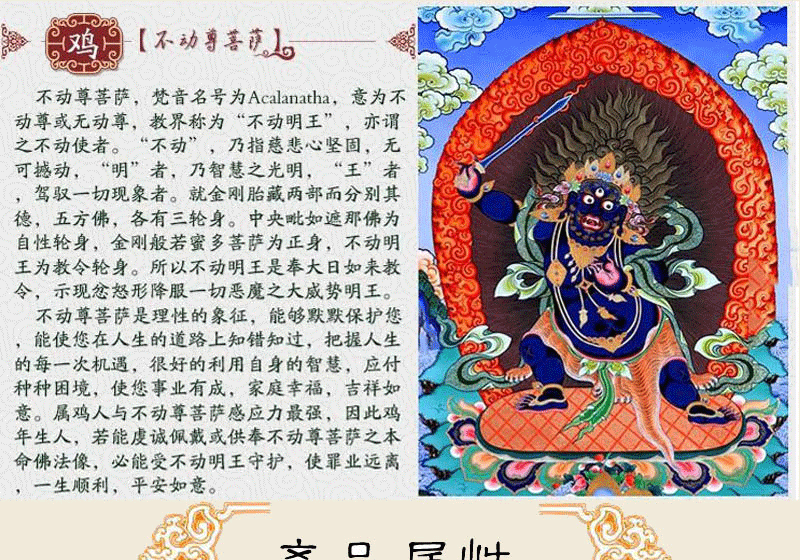 鸡
【不动尊菩萨】
不动尊菩萨，梵音名号为Acalanatha，意为不
动尊或无动尊，教界称为“不动明王”，亦谓
之不动使者。“不动”，乃指慈悲心坚固，无
可撼动，“明”者，乃智慧之光明，“王”者
，驾驭一切现象者。就金刚胎藏两部而分别其
德，五方佛，各有三轮身。中央毗如遮那佛为
自性轮身，金刚般若蜜多菩萨为正身，不动明
王为教令轮身。所以不动明王是奉大日如来教
令，示现忿怒形降服一切恶魔之大威势明王。
不动尊菩萨是理性的象征，能够默默保护您
，能使您在人生的道路上知错知过，把握人生
的每一次机遇，很好的利用自身的智慧，应付
种种困境，使您事业有成，家庭幸福，吉祥如
意。属鸡人与不动尊菩萨感应力最强，因此鸡
年生人，若能虔诚佩戴或供奉不动尊菩萨之本
命佛法像，必能受不动明王守护，使罪业远离
，一生顺利，平安如意。
产品属性